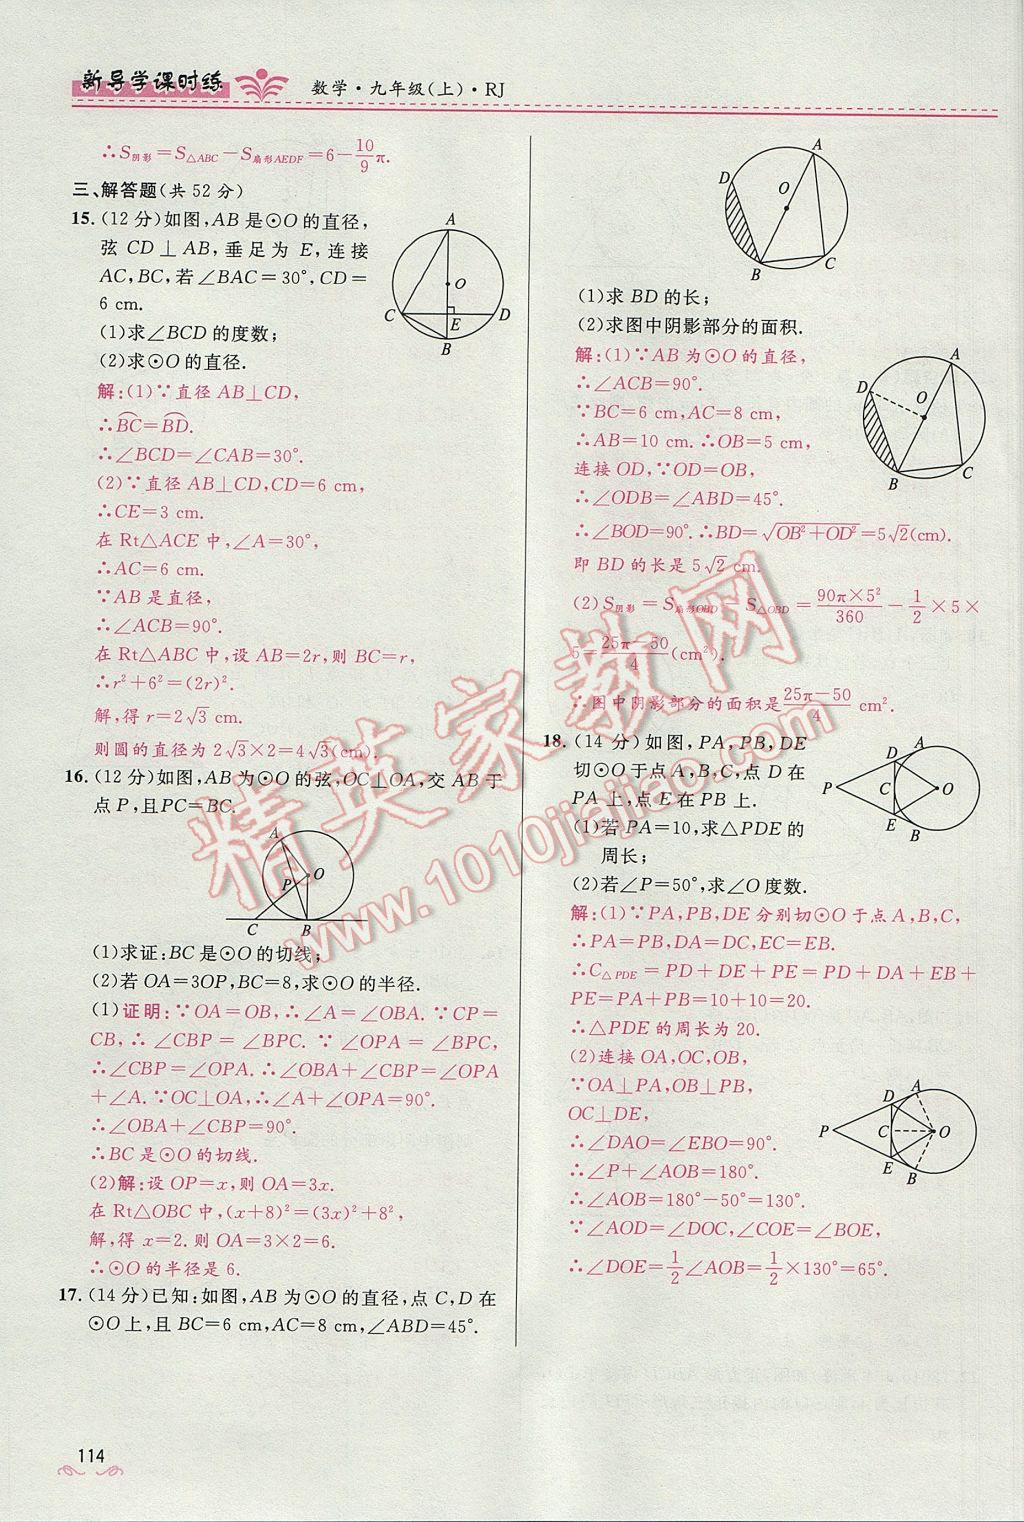 新导学课时练
数学·九年级(上)·RJ
∴S阴影=S△ABC-S扇形AEDF=6-10/9π.
三、解答题(共52分)
15.(12分)如图,AB是⊙O的直径,
弦CD⊥AB,垂足为E,连接
AC,BC,若∠BAC=30°,CD=
6 cm.
(1)求∠BCD的度数;
(2)求⊙O的直径.
A
O
C
E
D
B
解:(1)∵直径AB⊥CD,
∴BC=BD.
∴∠BCD=∠CAB=30°.
(2)∵直径AB⊥CD,CD=6 cm,
∴CE=3 cm.
在Rt△ACE中,∠A=30°,
∴AC=6 cm.
∵AB是直径,
∴∠ACB=90°.
在Rt△ABC中,设AB=2r,则BC=r,
∴r²+6²=(2r)².
解,得r=2√3 cm.
则圆的直径为2√3×2=4√3(cm).
16.(12分)如图,AB为⊙O的弦,OC⊥OA,交AB于
点P,且PC=BC.
A
P
O
C
B
(1)求证:BC是⊙O的切线;
(2)若OA=3OP,BC=8,求⊙O的半径.
(1)证明:∵OA=OB,∴∠A=∠OBA.∵CP=
CB,∴∠CBP=∠BPC.∵∠OPA=∠BPC,
∴∠CBP=∠OPA.∴∠OBA+∠CBP=∠OPA
+∠A.∵OC⊥OA,∴∠A+∠OPA=90°.
∴∠OBA+∠CBP=90°.
∴BC是⊙O的切线.
(2)解:设OP=x,则OA=3x.
在Rt△OBC中,(x+8)²=(3x)²+8²,
解,得x=2.则OA=3×2=6.
∴⊙O的半径是6.
17.(14分)已知:如图,AB为⊙O的直径,点C,D在
⊙O上,且BC=6 cm,AC=8 cm,∠ABD=45°.
A
D
O
B
C
(1)求BD的长;
(2)求图中阴影部分的面积.
解:(1)∵AB为⊙O的直径,
∴∠ACB=90°.
∵BC=6 cm,AC=8 cm,
∴AB=10 cm.∴OB=5 cm,
连接OD,∵OD=OB,
∴∠ODB=∠ABD=45°.
∴∠BOD=90°.∴BD=√(OB²+OD²)=5√2(cm).
即BD的长是5√2 cm.
A
D
O
B
C
(2)S阴影=S扇形OBD-S△OBD=90π×5²/360-1/2×5×
5=25π-50/4(cm²).
∴图中阴影部分的面积是25π-50/4 cm².
18.(14分)如图,PA,PB,DE
切⊙O于点A,B,C,点D在
PA上,点E在PB上.
(1)若PA=10,求△PDE的
周长;
(2)若∠P=50°,求∠O度数.
A
D
P
C
O
E
B
解:(1)∵PA,PB,DE分别切⊙O于点A,B,C,
∴PA=PB,DA=DC,EC=EB.
∴C△PDE=PD+DE+PE=PD+DA+EB+
PE=PA+PB=10+10=20.
∴△PDE的周长为20.
(2)连接OA,OC,OB,
∵OA⊥PA,OB⊥PB,
OC⊥DE,
∴∠DAO=∠EBO=90°.
∴∠P+∠AOB=180°.
∴∠AOB=180°-50°=130°.
∵∠AOD=∠DOC,∠COE=∠BOE,
∴∠DOE=1/2∠AOB=1/2×130°=65°.
A
D
P
C
O
E
B
精英家教网
www.1010jiajiao.com
114